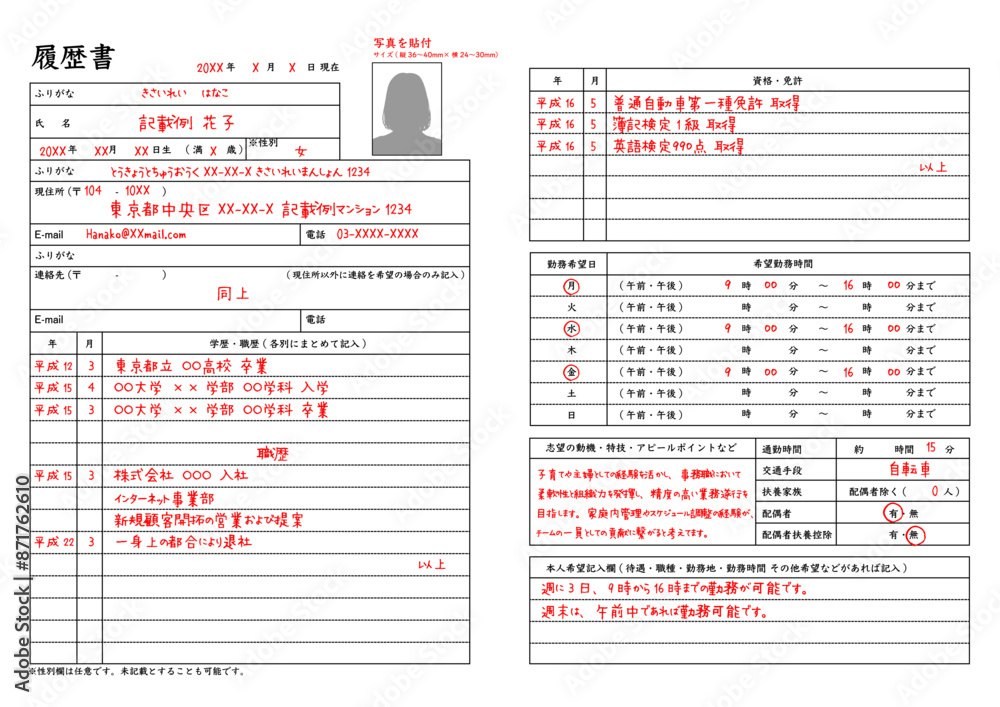 履歴書
写真を貼付
サイズ(縦36~40mm×横24~30mm)
20XX 年 X 月 X 日 現在
ふりがな きさいれい はなこ
氏 名 記載例 花子
20XX 年 XX 月 XX 日生 (満 X 歳) ※性別 女
ふりがな とうきょうとちゅうおうく XX-XX-X きさいれいまんしょん 1234
現住所(〒104 - 10XX )
東京都中央区 XX-XX-X 記載例マンション 1234
E-mail Hanako@XXmail.com 電話 03-XXXX-XXXX
ふりがな
連絡先(〒 - ) (現住所以外に連絡を希望の場合のみ記入)
同上
E-mail 電話
年 月 学歴・職歴(各別にまとめて記入)
平成12 3 東京都立 〇〇高校 卒業
平成15 4 〇〇大学 ×× 学部 〇〇学科 入学
平成15 3 〇〇大学 ×× 学部 〇〇学科 卒業
職歴
平成15 3 株式会社 〇〇〇 入社
インターネット事業部
新規顧客開拓の営業および提案
平成22 3 一身上の都合により退社
以上
※性別欄は任意です。未記載とすることも可能です。
年 月 資格・免許
平成16 5 普通自動車第一種免許 取得
平成16 5 簿記検定1級 取得
平成16 5 英語検定990点 取得
以上
勤務希望日 希望勤務時間
月 (午前・午後) 9 時 00 分 ~ 16 時 00 分まで
火 (午前・午後) 時 分 ~ 時 分まで
水 (午前・午後) 9 時 00 分 ~ 16 時 00 分まで
木 (午前・午後) 時 分 ~ 時 分まで
金 (午前・午後) 9 時 00 分 ~ 16 時 00 分まで
土 (午前・午後) 時 分 ~ 時 分まで
日 (午前・午後) 時 分 ~ 時 分まで
志望の動機・特技・アピールポイントなど
子育てや主婦としての経験を活かし、事務職において
柔軟性と組織力を発揮し、精度の高い業務遂行を
目指します。家庭内管理やスケジュール調整の経験が、
チームの一員としての貢献に繋がると考えてます。
通勤時間 約 時間 15 分
交通手段 自転車
扶養家族 配偶者除く( 0 人)
配偶者 有・無
配偶者扶養控除 有・無
本人希望記入欄(待遇・職種・勤務地・勤務時間 その他希望などがあれば記入)
週に3日、9時から16時までの勤務が可能です。
週末は、午前中であれば勤務可能です。
Adobe Stock | #871762610